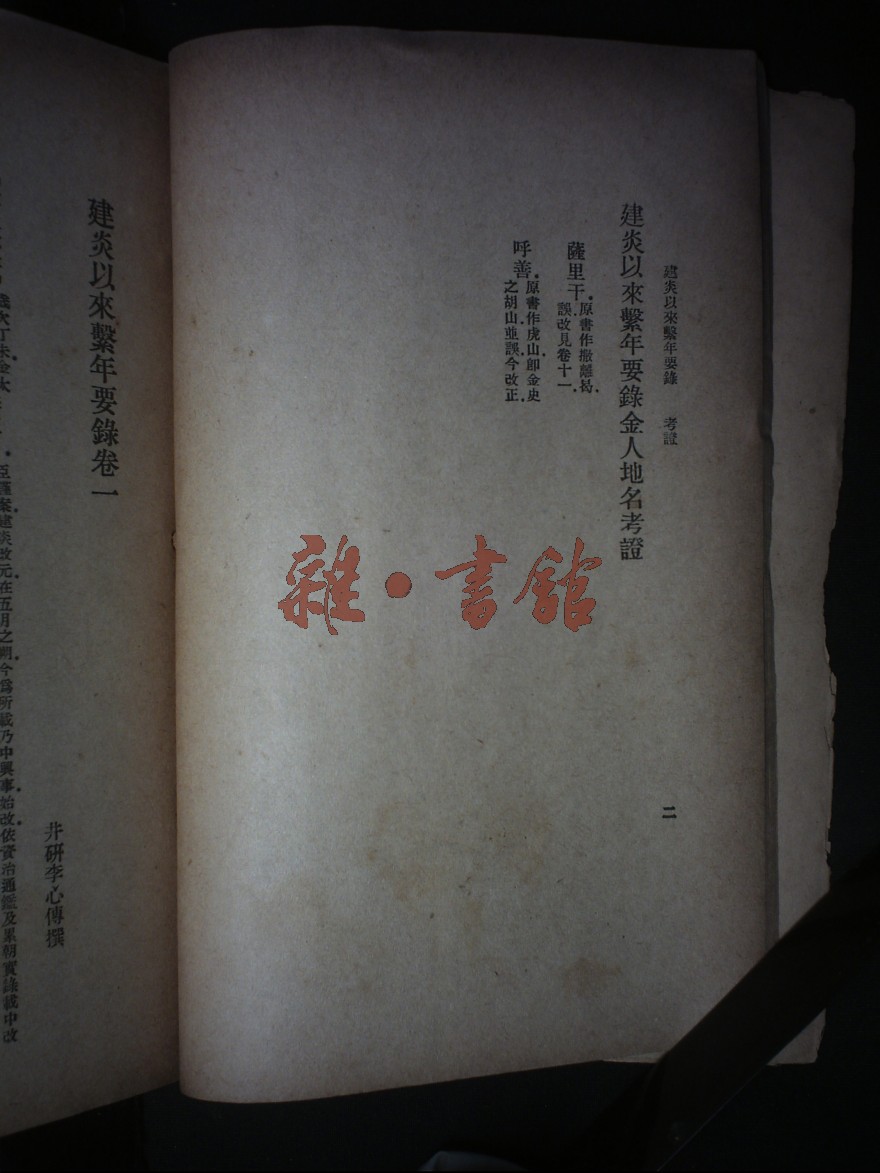 建炎以來繫年要錄 考證
二
建炎以來繫年要錄金人地名考證
薩里干。原書作撒離曷。
誤改見卷十一。
呼善。原書作虎山。卽金史
之胡山。並誤今改正。
雜·書館
建炎以來繫年要錄卷一
井研李心傳撰
臣謹案建炎改元在五月之朔。今爲所載乃中興事始。故依資治通鑑及累朝實錄載中改